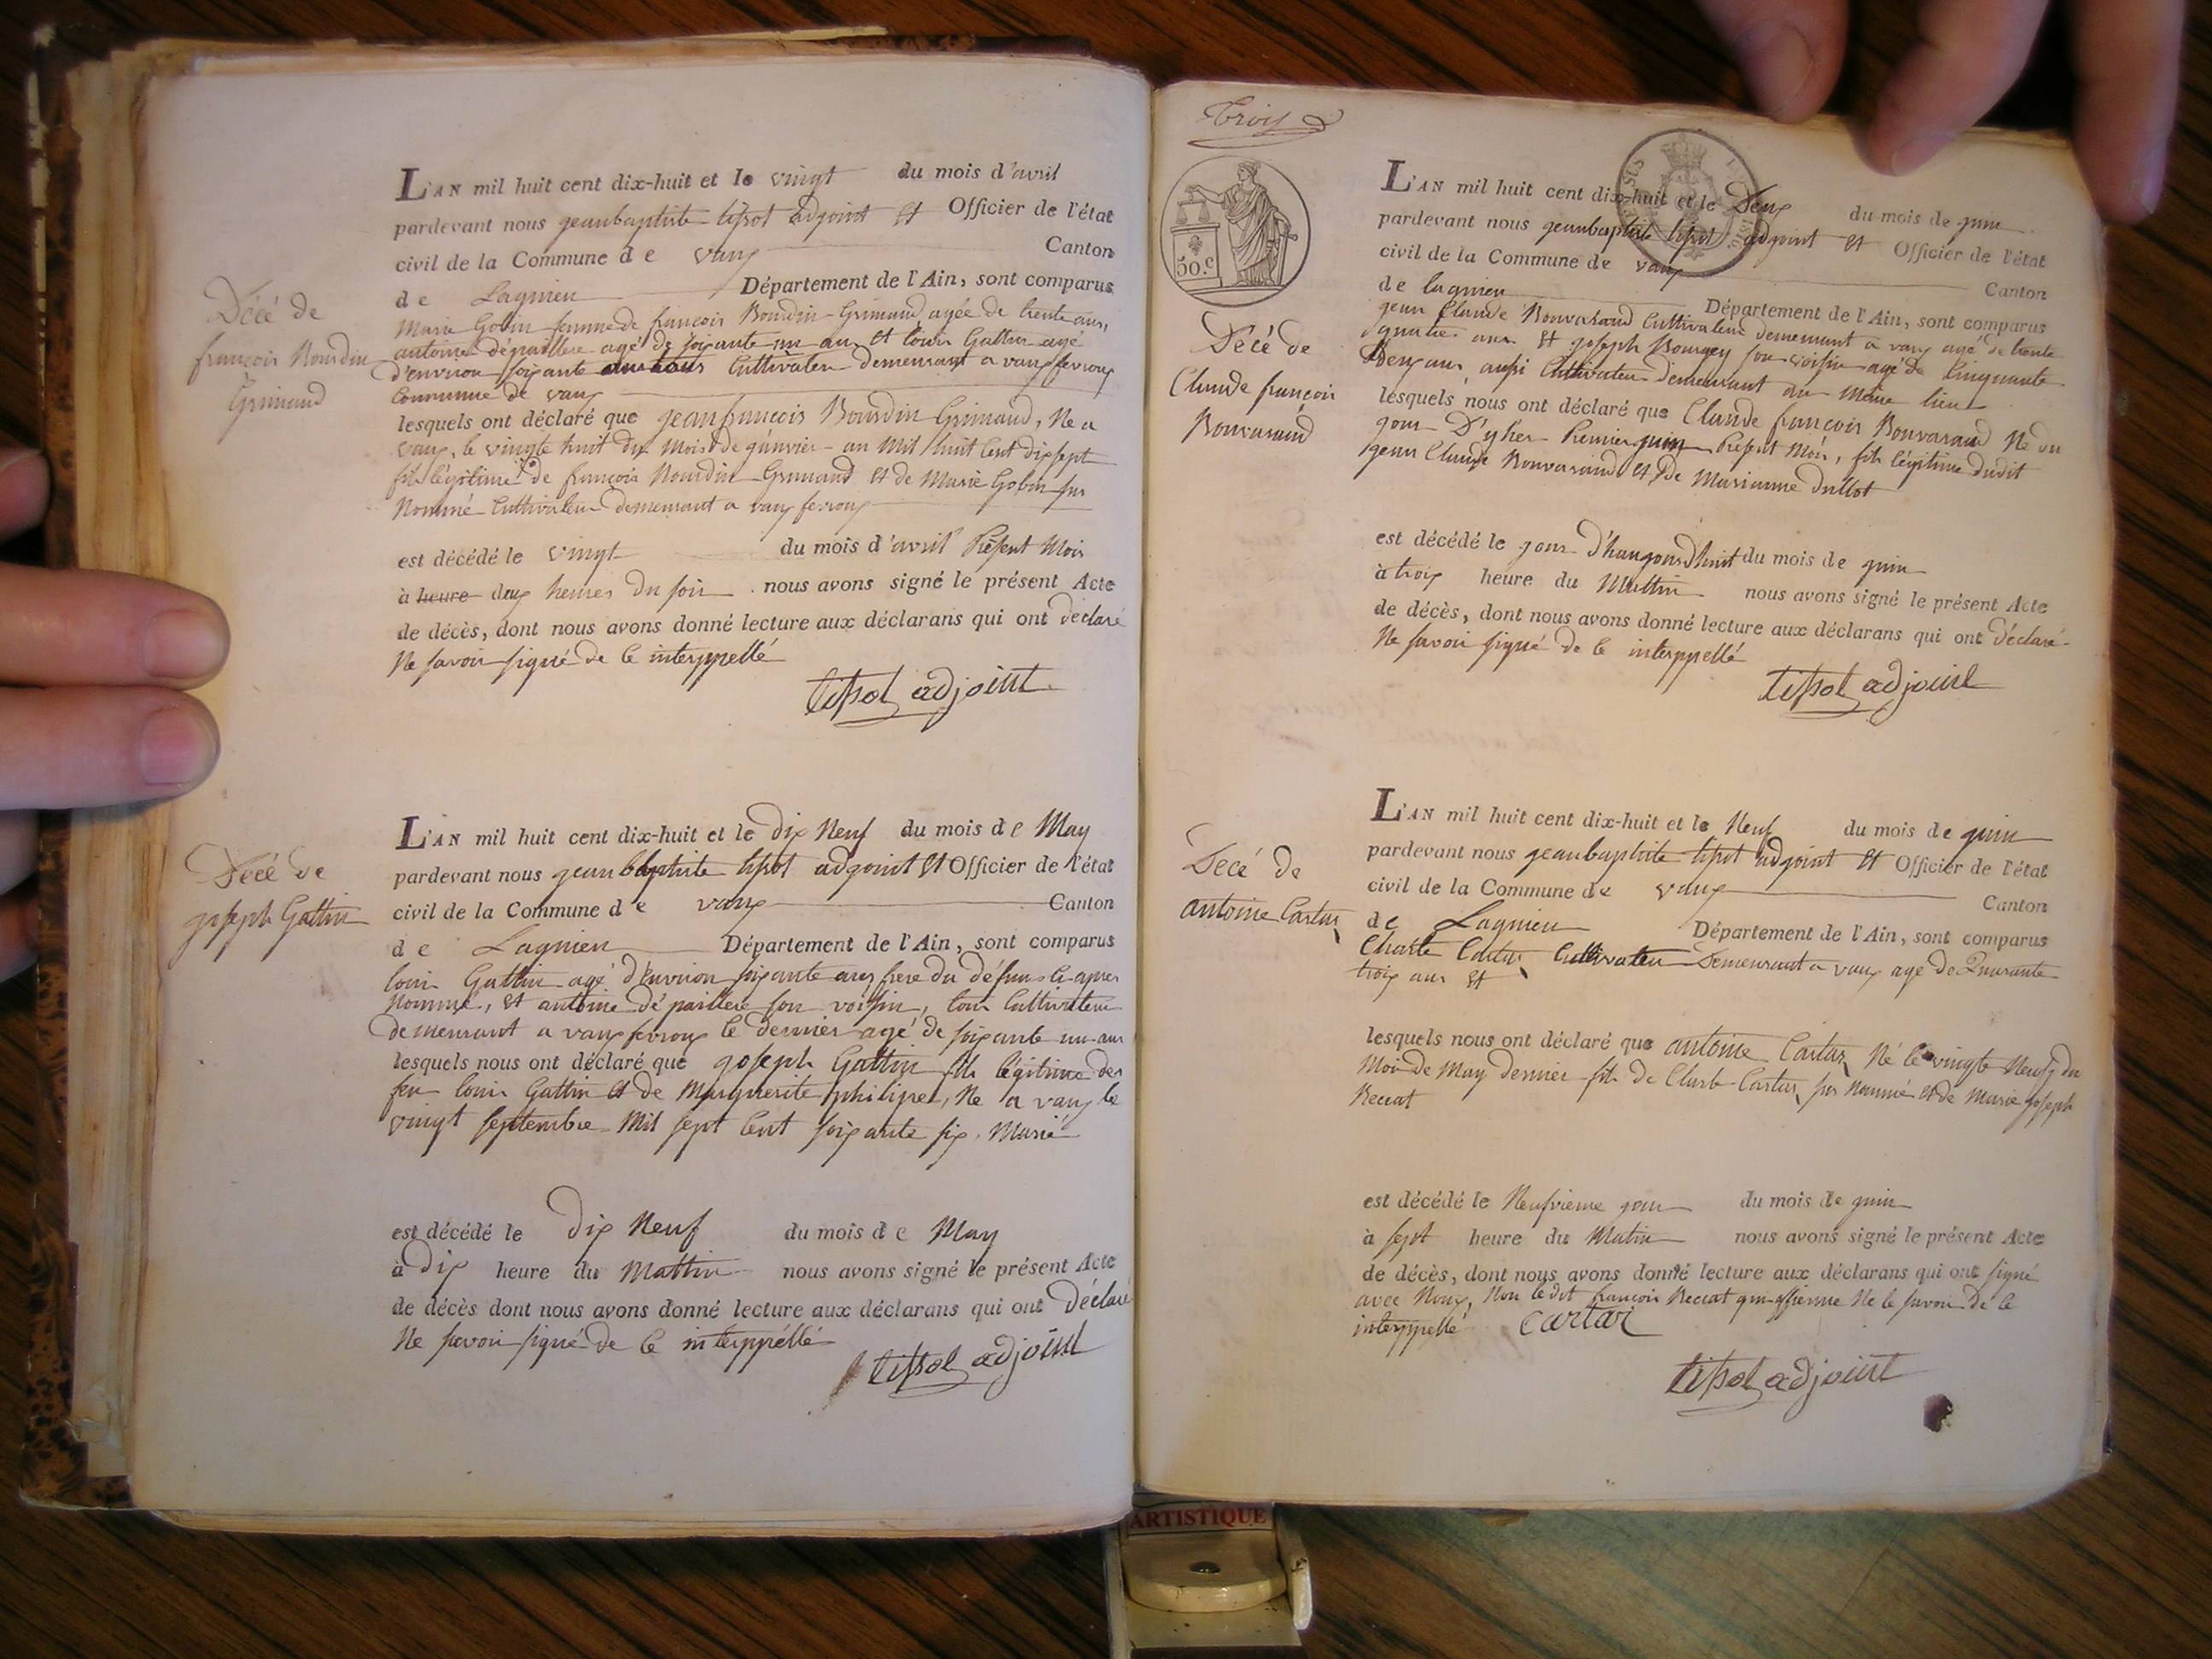 Décé de
françois Bourdin
Grimaud
L'AN mil huit cent dix-huit et le vingt du mois d'avril
pardevant nous jeanbaptiste tissot adjoint et Officier de l'état
civil de la Commune de vaux Canton
de Lagnieu Département de l'Ain, sont comparus
Marie Gobin femme de françois Bourdin Grimaud agée de trente ans,
antoine dépaillere agé de soixante un an, et louis Gattin agé
d'environ soixante Cultivateu demeurant a vaux fevroux
Commune de vaux
lesquels ont déclaré que jean françois Bourdin Grimaud, Ne a
vaux, le vingte huit du Mois de janvier an Mil huit Cent dix sept
fils légitime de françois Bourdin Grimaud et de Marie Gobin sus
Nommé Cultivateu demeurant a vaux fevroux
est décédé le vingt du mois d'avril Présent Mois
à heure deux heures du soir nous avons signé le présent Acte
de décès, dont nous avons donné lecture aux déclarans qui ont déclaré
Ne savoir signé de ce interppellé
tissot adjoint
Décé de
joseph Gattin
L'AN mil huit cent dix-huit et le dix Neuf du mois de May
pardevant nous jean baptiste tissot adjoint et Officier de l'état
civil de la Commune de vaux Canton
de Lagnieu Département de l'Ain, sont comparus
louis Gattin agé d'environ soixante ans frere du défun Ci apres
Nommé, et antoine dépaillere son voissin, tous Cultivateu
demeurant a vaux fevroux le dernier agé de soixante un ans
lesquels nous ont déclaré que joseph Gattin fils légitime de
feu louis Gattin et de Marguerite philipe, Ne a vaux le
vingt septembre Mil sept Cent soixante six. Marié
est décédé le dix Neuf du mois de May
à dix heure du Mattin nous avons signé le présent Acte
de décès dont nous avons donné lecture aux déclarans qui ont déclaré
Ne savoir signé de ce interppéllé
tissot adjoint
Trois
50.c
Décé de
Claude françois
Bonvarand
L'AN mil huit cent dix-huit et le Deux du mois de juin
pardevant nous jeanbaptiste tissot adjoint et Officier de l'état
civil de la Commune de vaux
de lagnieu Canton
Département de l'Ain, sont comparus
jean Claude Bonvarand Cultivateu demeurant a vaux agé de trente
quatre ans et joseph Bourgey son voisin agé de Cinquante
Deux ans, aussi Cultivateu demeurant au même lieu
lesquels nous ont déclaré que Claude françois Bonvarand Ne du
jour D'yher Premier juin Présent Mois, fils légitime dudit
jean Claude Bonvarand et de Marianne dullot
est décédé le jour D'haujourdhuit du mois de juin
à trois heure du Mattin nous avons signé le présent Acte
de décès, dont nous avons donné lecture aux déclarans qui ont déclaré
Ne savoir signé de ce interppellé
tissot adjoint
Décé de
antoine Cartar
L'AN mil huit cent dix-huit et le Neuf du mois de juin
pardevant nous jeanbaptiste tissot adjoint et Officier de l'état
civil de la Commune de vaux Canton
de Lagnieu Département de l'Ain, sont comparus
Charle Cartar Cultivateu demeurant a vaux agé de Quarante
trois ans et
lesquels nous ont déclaré que antoine Cartar Né le vingte Neuf du
Mois de May dernier fils de Charle Cartar sus Nommé et de Marie joseph
Reccat
est décédé le Neufvieme jour du mois de juin
à sept heure du Matin nous avons signé le présent Acte
de décès, dont nous avons donné lecture aux déclarans qui ont signé
avec Nous, Non ledit françois Reccat qui affierme Ne le savoir de ce
interppellé Cartar
tissot adjoint
ARTISTIQUE